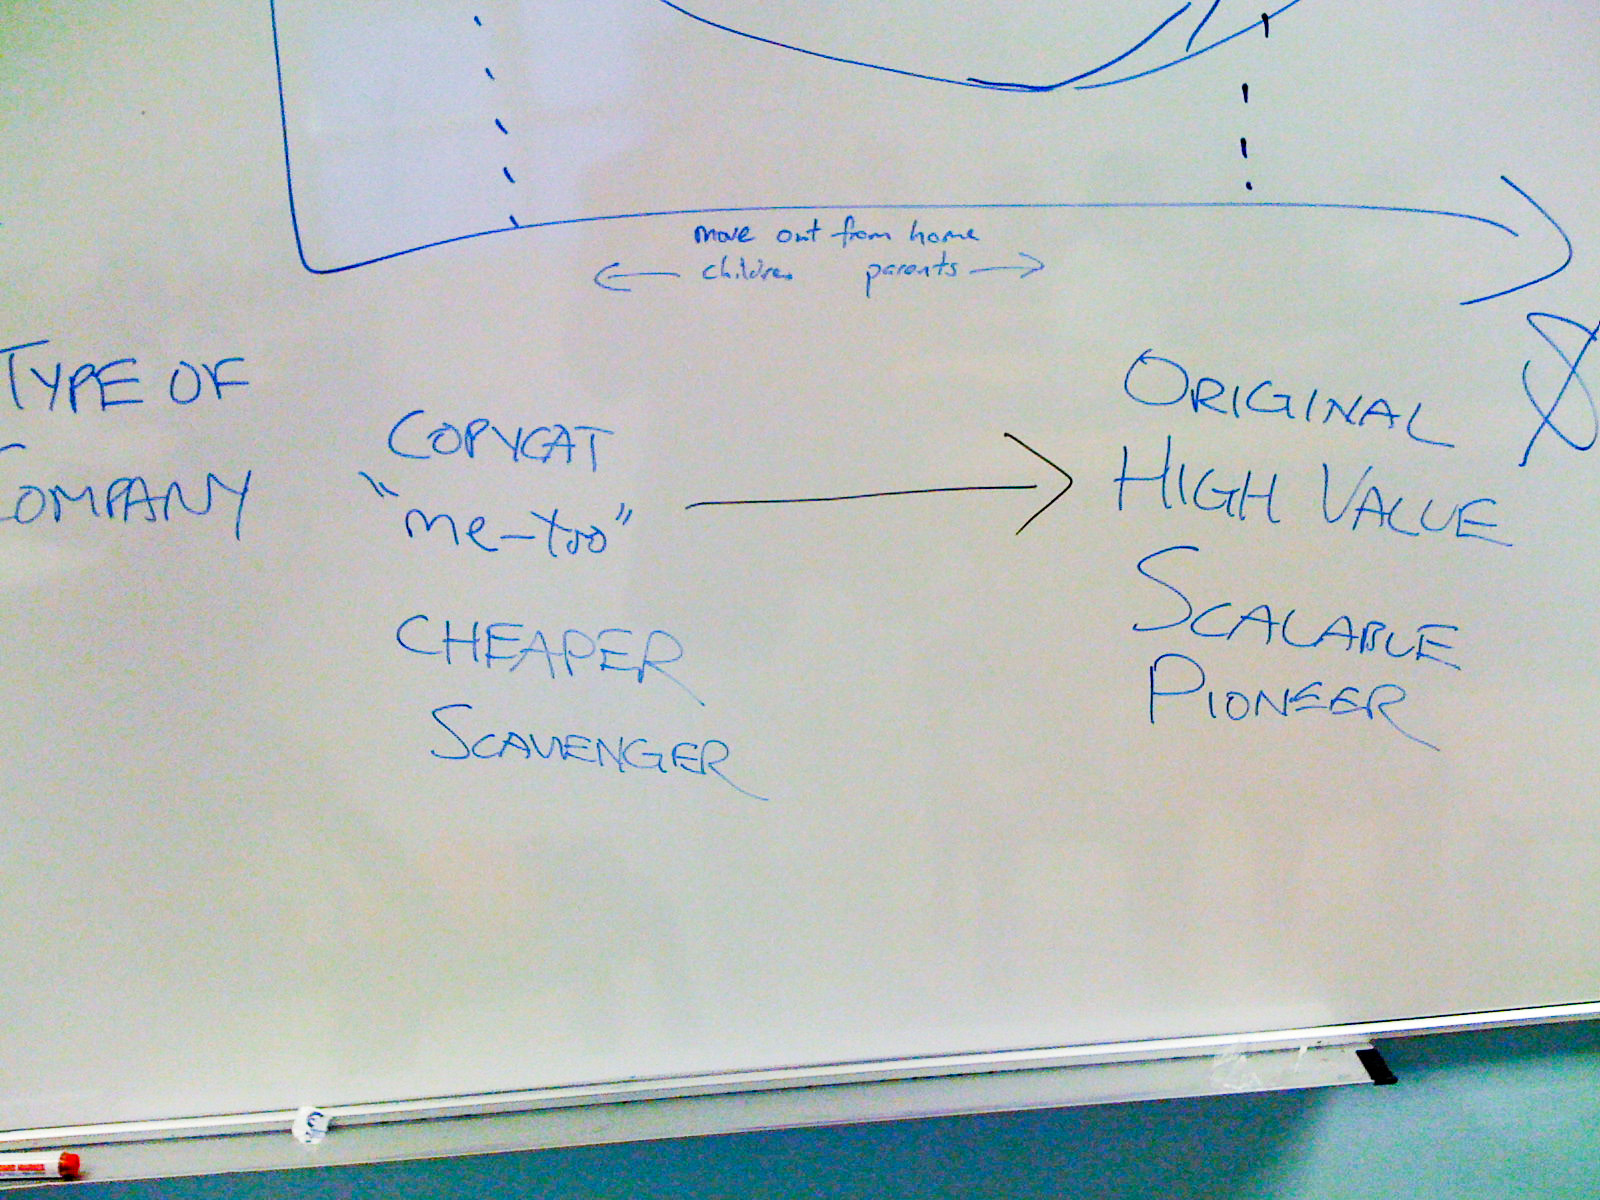 move out from home
children parents
TYPE OF
COMPANY
COPYCAT
"me-too"
CHEAPER
SCAVENGER
ORIGINAL
HIGH VALUE
SCALABLE
PIONEER